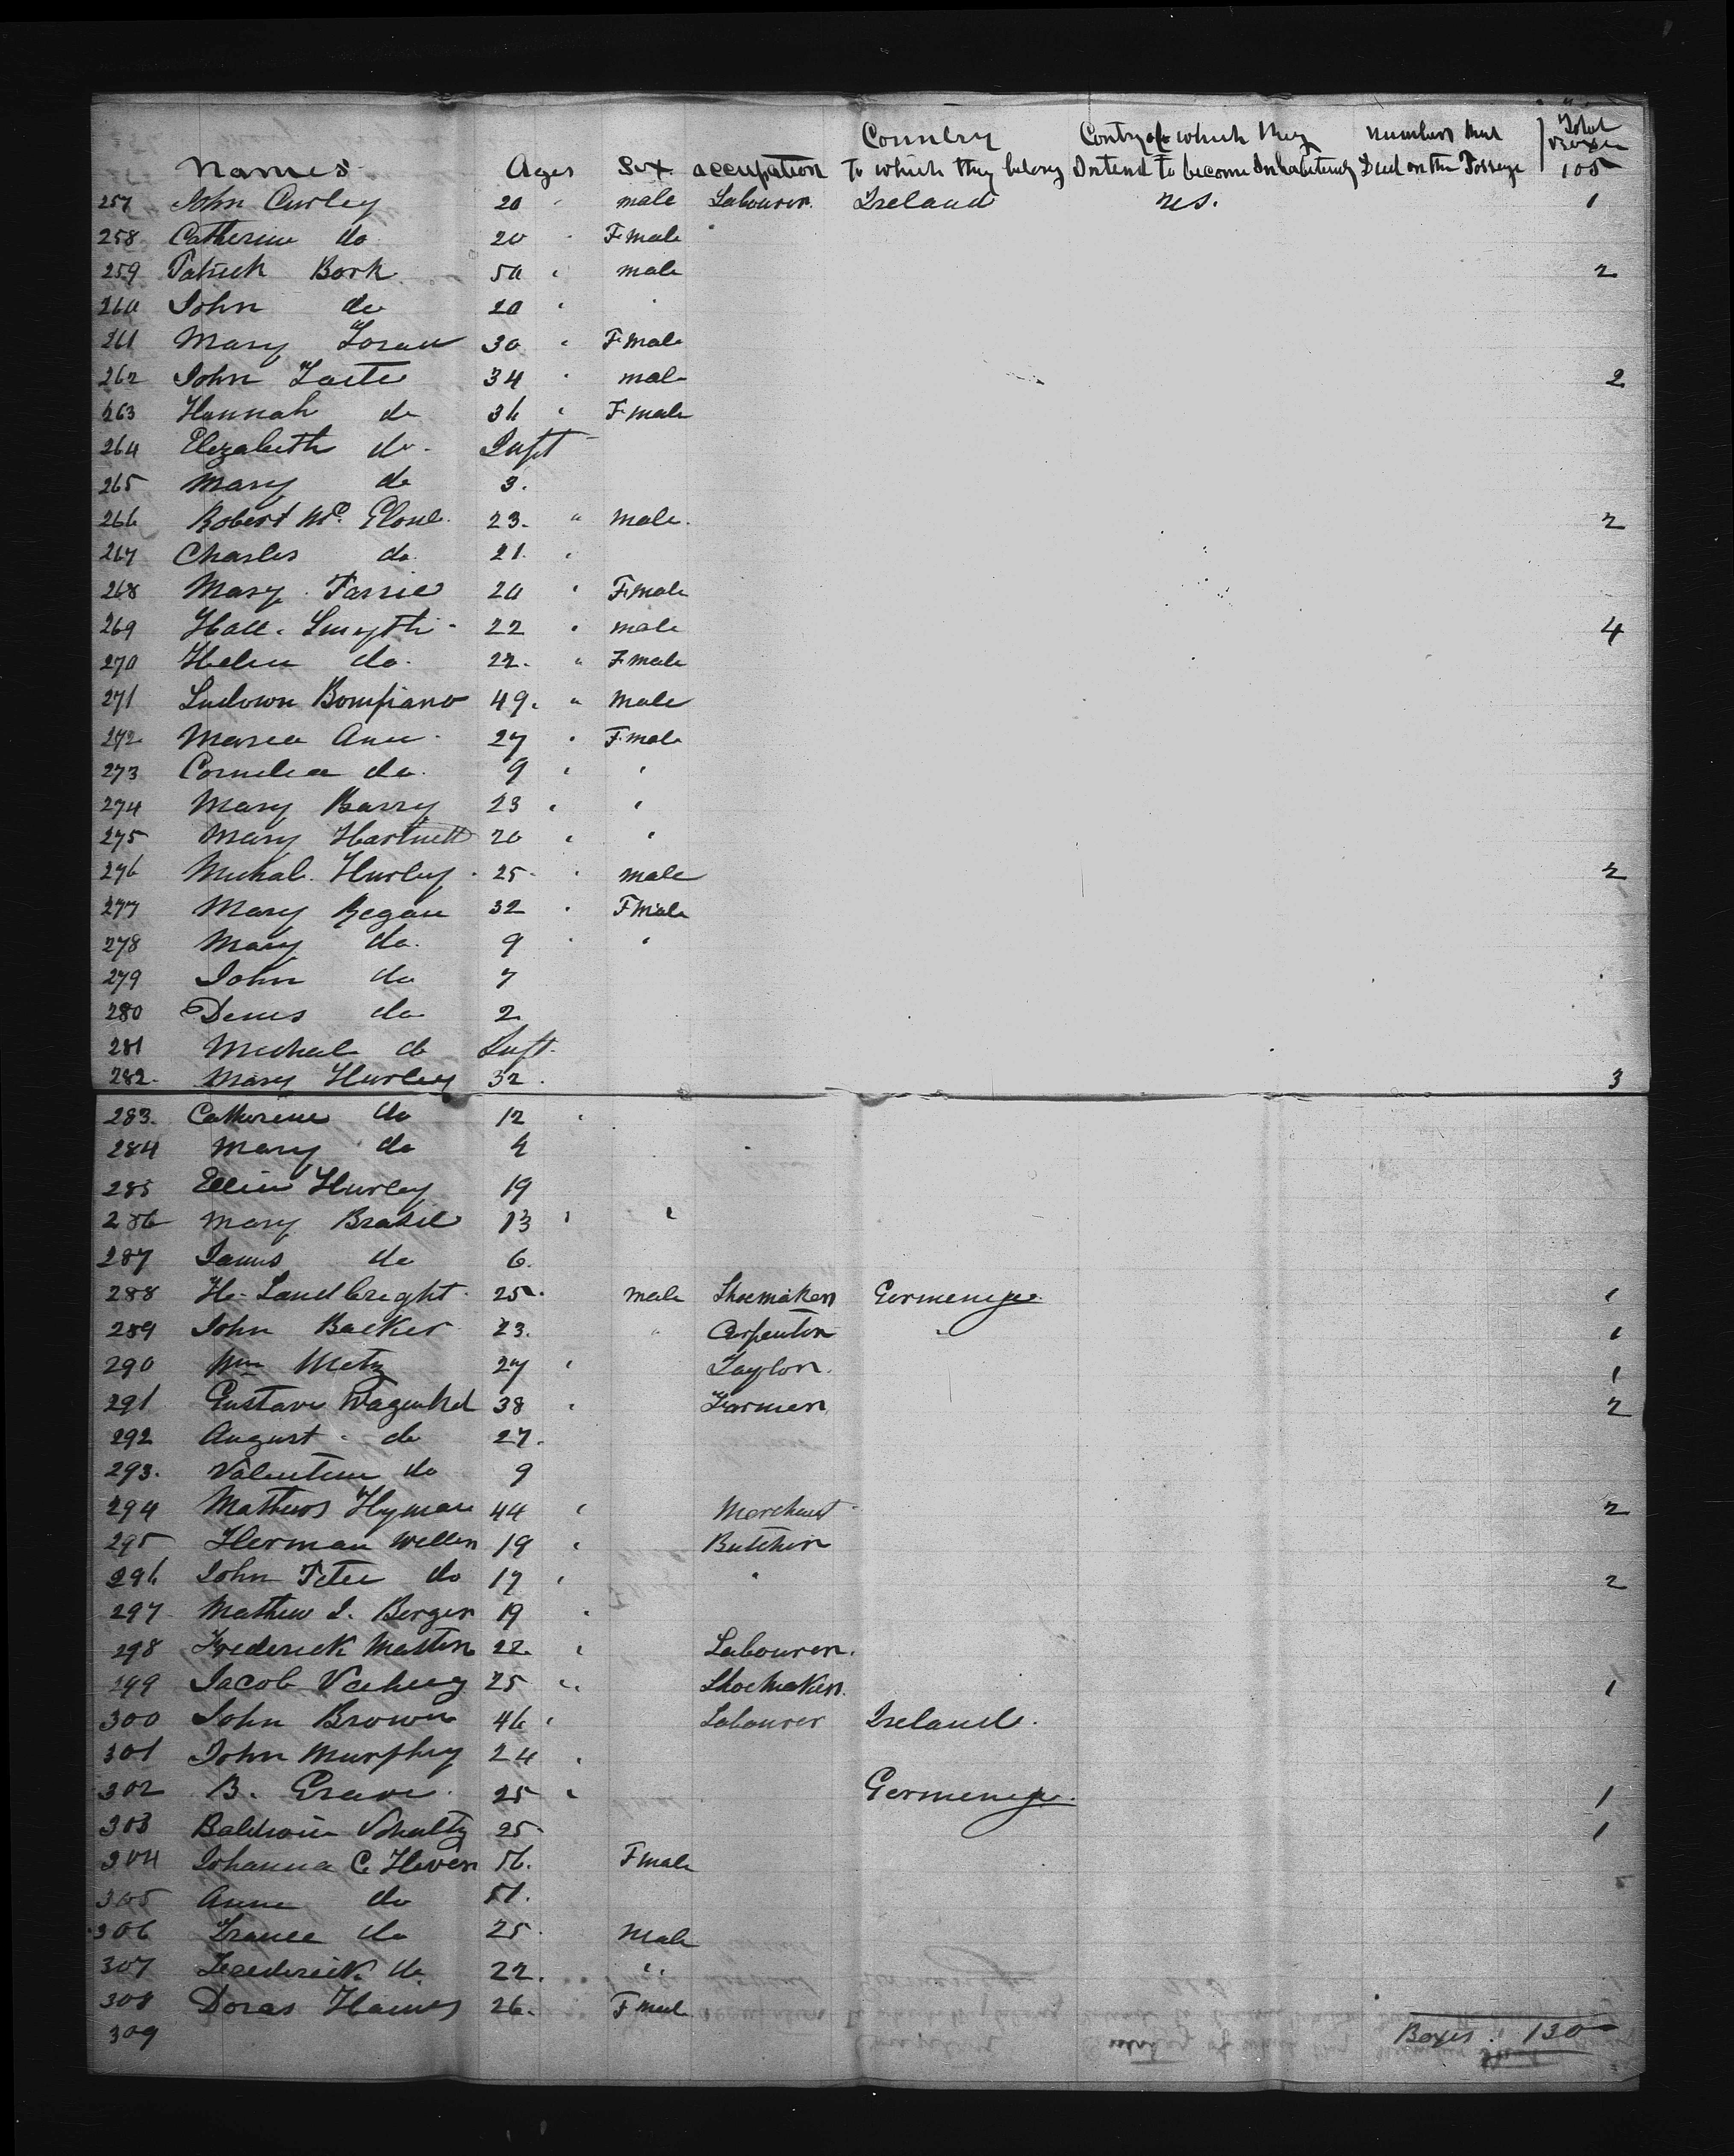 Country Contry of which they numbers that Total Boxes
Names Ages Sex occupation To which they belong Intend to become Inhabitants Died on the Passage 105
257 John Curley 20 " male Labourer Ireland us. 1
258 Catherine do 20 " Fmale "
259 Patrick Bork 50 " male 2
260 John do 20 " "
261 Mary 30 " Fmale
262 John 34 " male 2
263 Hannah do 36 " Fmale
264 Elizabeth do Inft
265 Mary do 3.
266 Robert Mc. 23. " male. 2
267 Charles do 21. "
268 Mary 20 " Fmale
269 Hall. Smyth 22 " male 4
270 Helen do. 22. " Fmale
271 Bompiano 49. " male
272 Maria Ann 27 " Fmale
273 Cornelia do. 9 " "
274 Mary Barry 23 " "
275 Mary Hartnett 20 " "
276 Michal Hurley 25 " male 2
277 Mary Regan 32 " Fmale
278 Mary do. 9 " "
279 John do 7
280 Denis do 2
281 Micheal do Inft.
282. Mary Hurley 32. 3
283. Catherine do 12 "
284 Mary do 4
285 Ellin Hurley 19
286 Mary Brasil 13 " "
287 James do 6.
288 H. Landbright 25. male Shoemaker Germeny 1
289 John Backer 23. " Carpenter " 1
290 Wm Metz 27 " Taylor. 1
291 Gustave 38 " Farmer 2
292 August do 27.
293. Valentine do 9
294 Mathews Hyman 44 " Merchant 2
295 Herman Weller 19 " Butcher
296 John Peter do 17 " " 2
297 Mathew I. Berger 19 "
298 Frederick Master 22 " Labourer.
299 Jacob 25 " Shoemaker. 1
300 John Brown 46 " Labourer Ireland.
301 John Murphy 24 "
302 B. Grave 25 " Germeny. 1
303 Baldwin 25 1
304 Johanna C. Heven 56. Fmale
305 Anna do 51.
306 France do 25. Male
307 Frederick do 22. "
308 Doras 26. Fmal
309 Boxes. 130